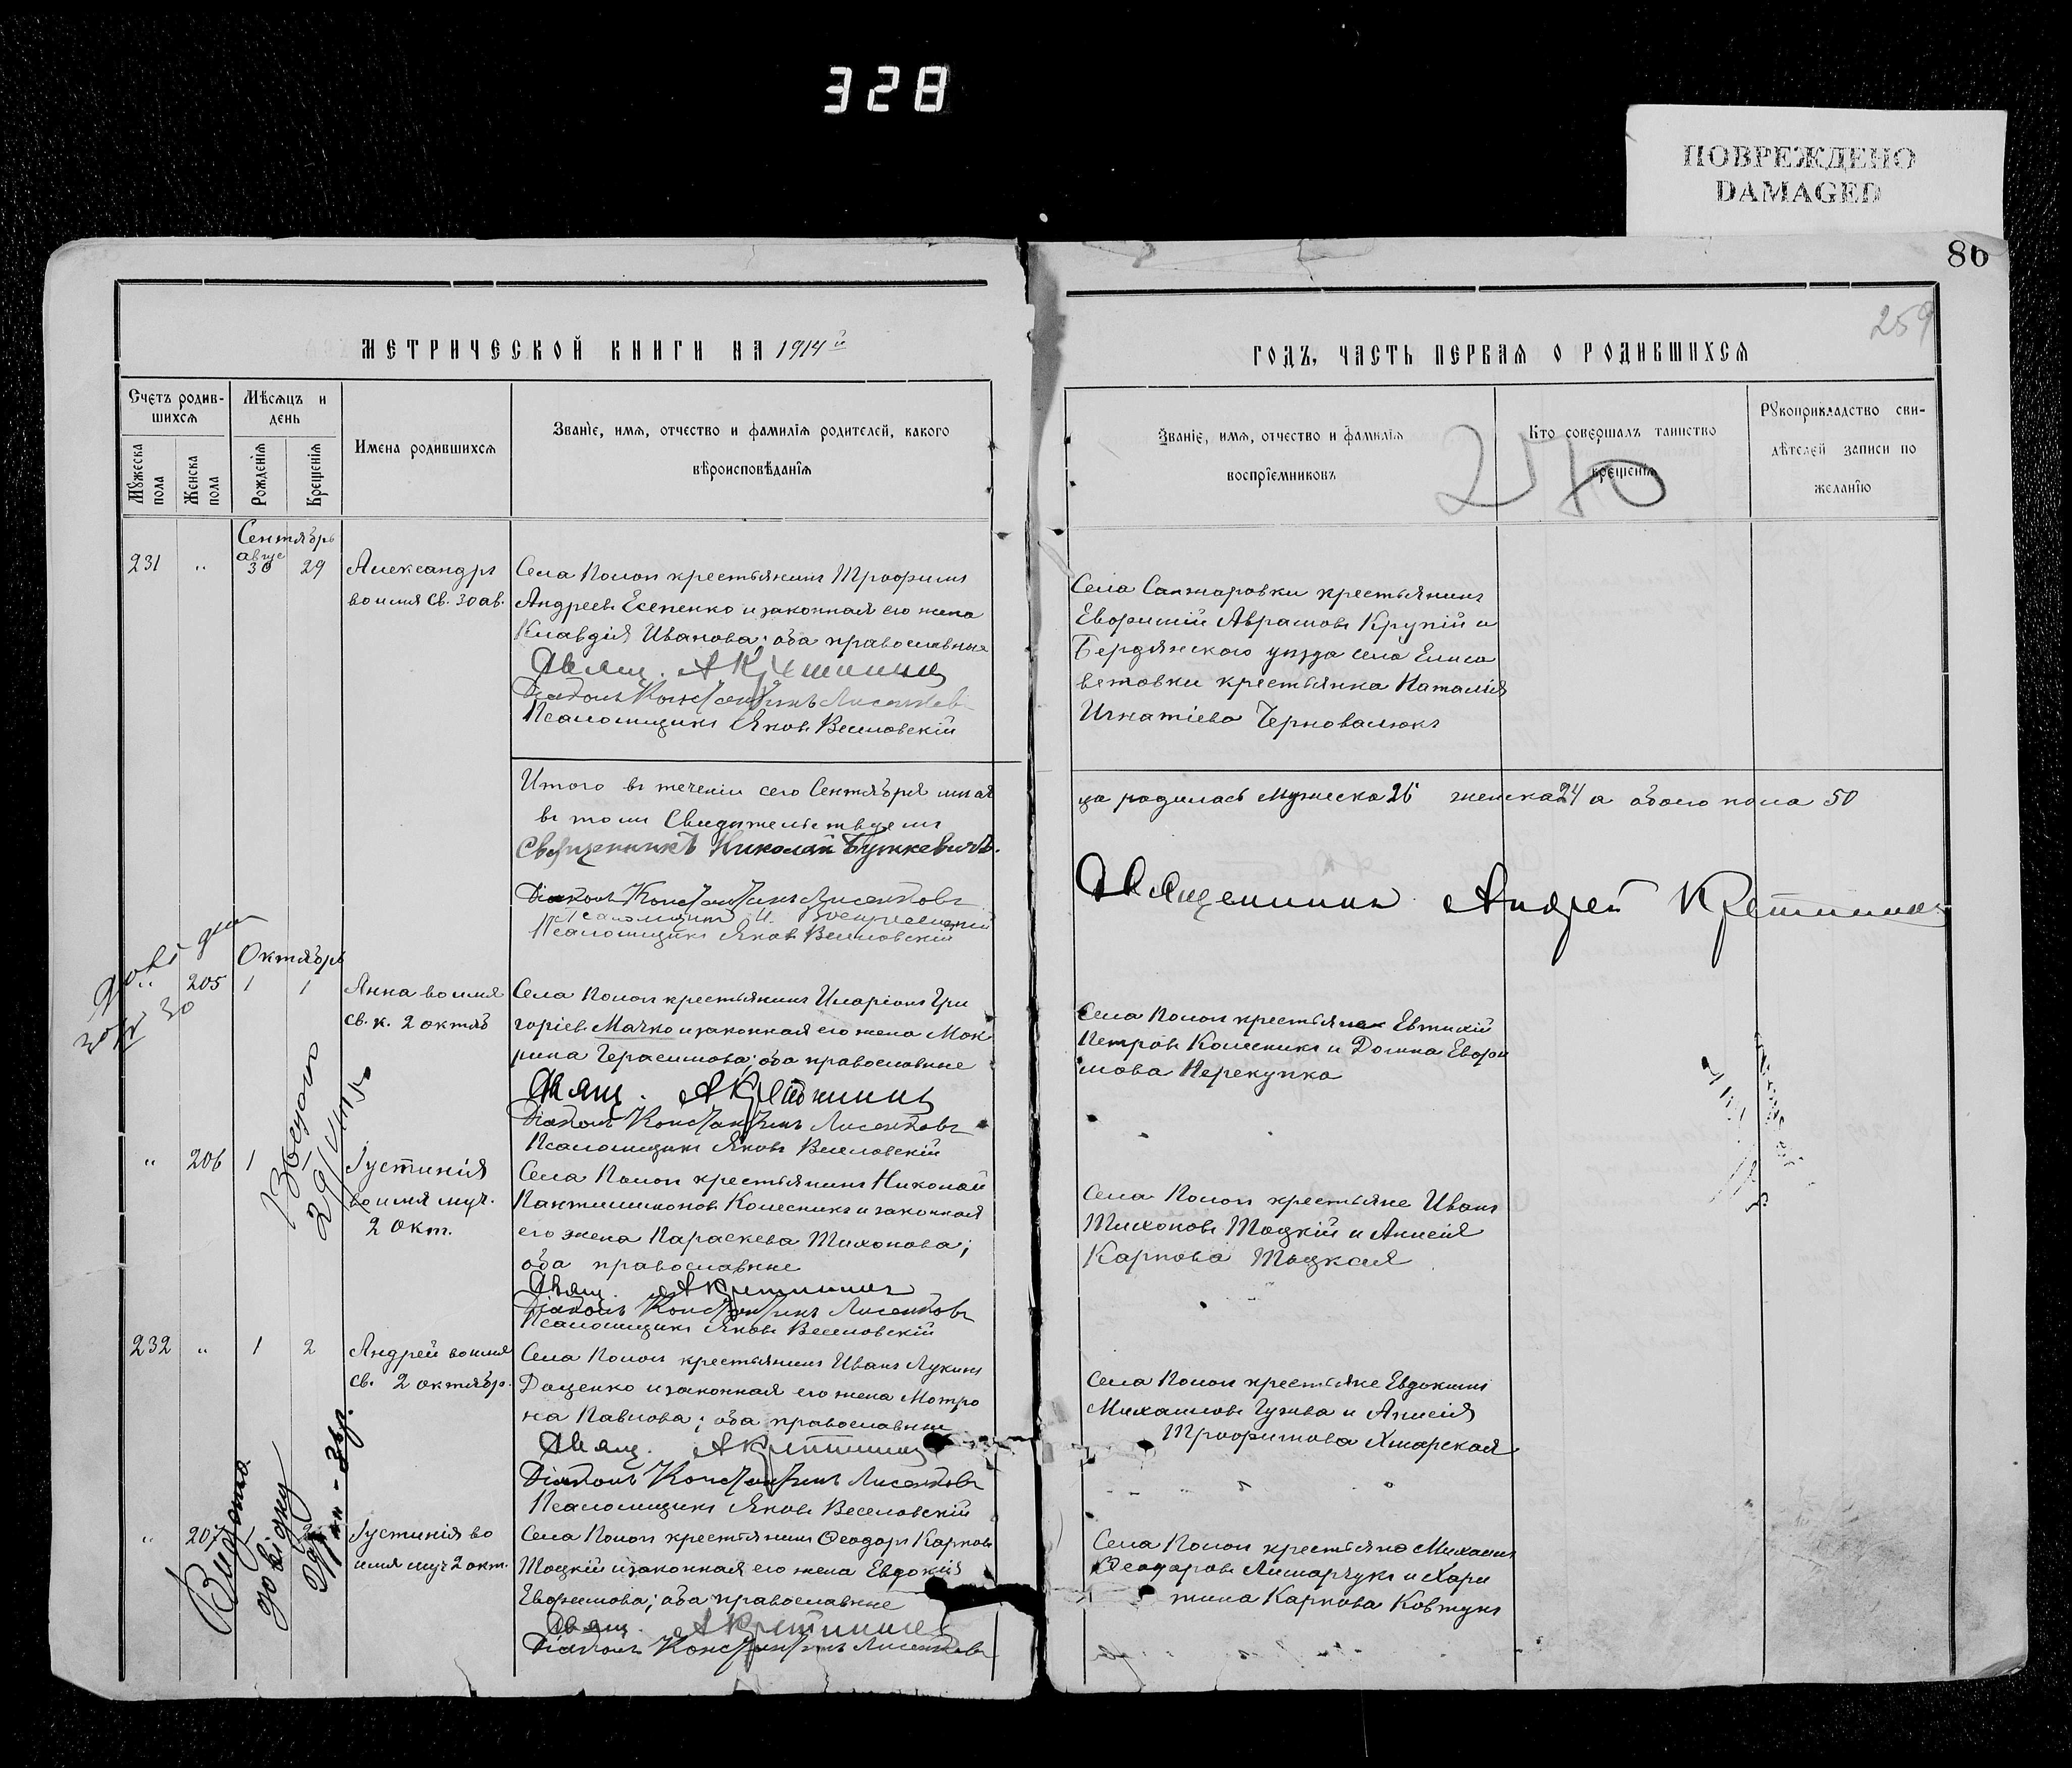 328
ПОВРЕЖДЕНО
DAMAGED
86
259
МЕТРИЧЕСКОЙ КНИГИ НА 1914й
ГОДЪ, ЧАСТЬ ПЕРВАЯ О РОДИВШИХСЯ
Счетъ родив-
шихся
Мужеска пола
Женска пола
Мѣсяцъ и
день
Рожденія
Крещенія
Имена родившихся
Званіе, имя, отчество и фамилія родителей, какого
вѣроисповѣданія
Званіе, имя, отчество и фамилія
воспріемниковъ
Кто совершалъ таинство
крещенія
270
Рукоприкладство сви-
дѣтелей записи по
желанію
Сентябрь
231 " авгус 30 29
Александръ
во имя св. 30 ав.
Села Пологъ крестьянинъ Трофимъ
Андреевъ Есепенко и законная его жена
Клавдія Иванова; оба православные
Свящ. А Крѣтининъ
Діаконъ Константинъ Лисенковъ
Псаломщикъ Яковъ Веселовскій
Села Санжаровки крестьянинъ
Евфимій Аврамовъ Крупій и
Бердянскаго уѣзда села Елиса
ветовки крестьянка Наталія
Игнатіева Черновалюкъ
Итого въ теченіи сего Сентября мѣся
ца родилось мужеска 26 женска 24 а обоего пола 50
въ томъ Свидѣтельствуемъ
Священникъ Николай Буткевичъ.
Діаконъ Константинъ Лисенковъ
Псаломщикъ И. Воскресенскій
Псаломщикъ Яковъ Веселовскій
Священникъ Андрей Крѣтининъ
Октябрь
" 205 1 1
Анна во имя
св. к. 2 октяб
Села Пологъ крестьянинъ Иларіонъ Гри
горіевъ Мачко и законная его жена Мок
рина Герасимова; оба православные
Свящ. А Крѣтининъ
Діаконъ Константинъ Лисенковъ
Псаломщикъ Яковъ Веселовскій
Села Пологъ крестьяне Евтихій
Петровъ Колесникъ и Домна Евфи
мова Перекупка
" 206 1
Іустинія
во имя муч.
2 Окт.
Села Пологъ крестьянинъ Николай
Пантелимоновъ Колесникъ и законная
его жена Параскева Тихонова;
оба православные
Свящ. А Крѣтининъ
Діаконъ Константинъ Лисенковъ
Псаломщикъ Яковъ Веселовскій
Села Пологъ крестьяне Иванъ
Тихоновъ Тоцкій и Анисія
Карпова Тоцкая
232 " 1 2
Андрей во имя
св. 2 октябр.
Села Пологъ крестьянинъ Иванъ Лукинъ
Даценко и законная его жена Мотро
на Павлова; оба православные
Свящ. А Крѣтининъ
Діаконъ Константинъ Лисенковъ
Псаломщикъ Яковъ Веселовскій
Села Пологъ крестьяне Евдокимъ
Михаиловъ Гужва и Анисія
Трофимова Хмарская
Видата
довідку
" 207
Іустинія во
имя муч 2 окт.
Села Пологъ крестьянинъ Ѳеодоръ Карповъ
Тоцкій и законная его жена Евдокія
Евфимова; оба православные
Свящ. А Крѣтининъ
Діаконъ Константинъ Лисенковъ
Села Пологъ крестьяне Михаилъ
Ѳеодоровъ Лимарчукъ и Хари
тина Карпова Ковтунъ